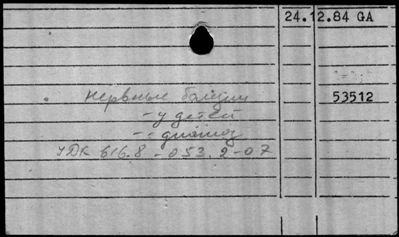 24.12.84 GA
нервные болезни 53512
- у детей
- : диагноз
УДК 616.8-053.2-07